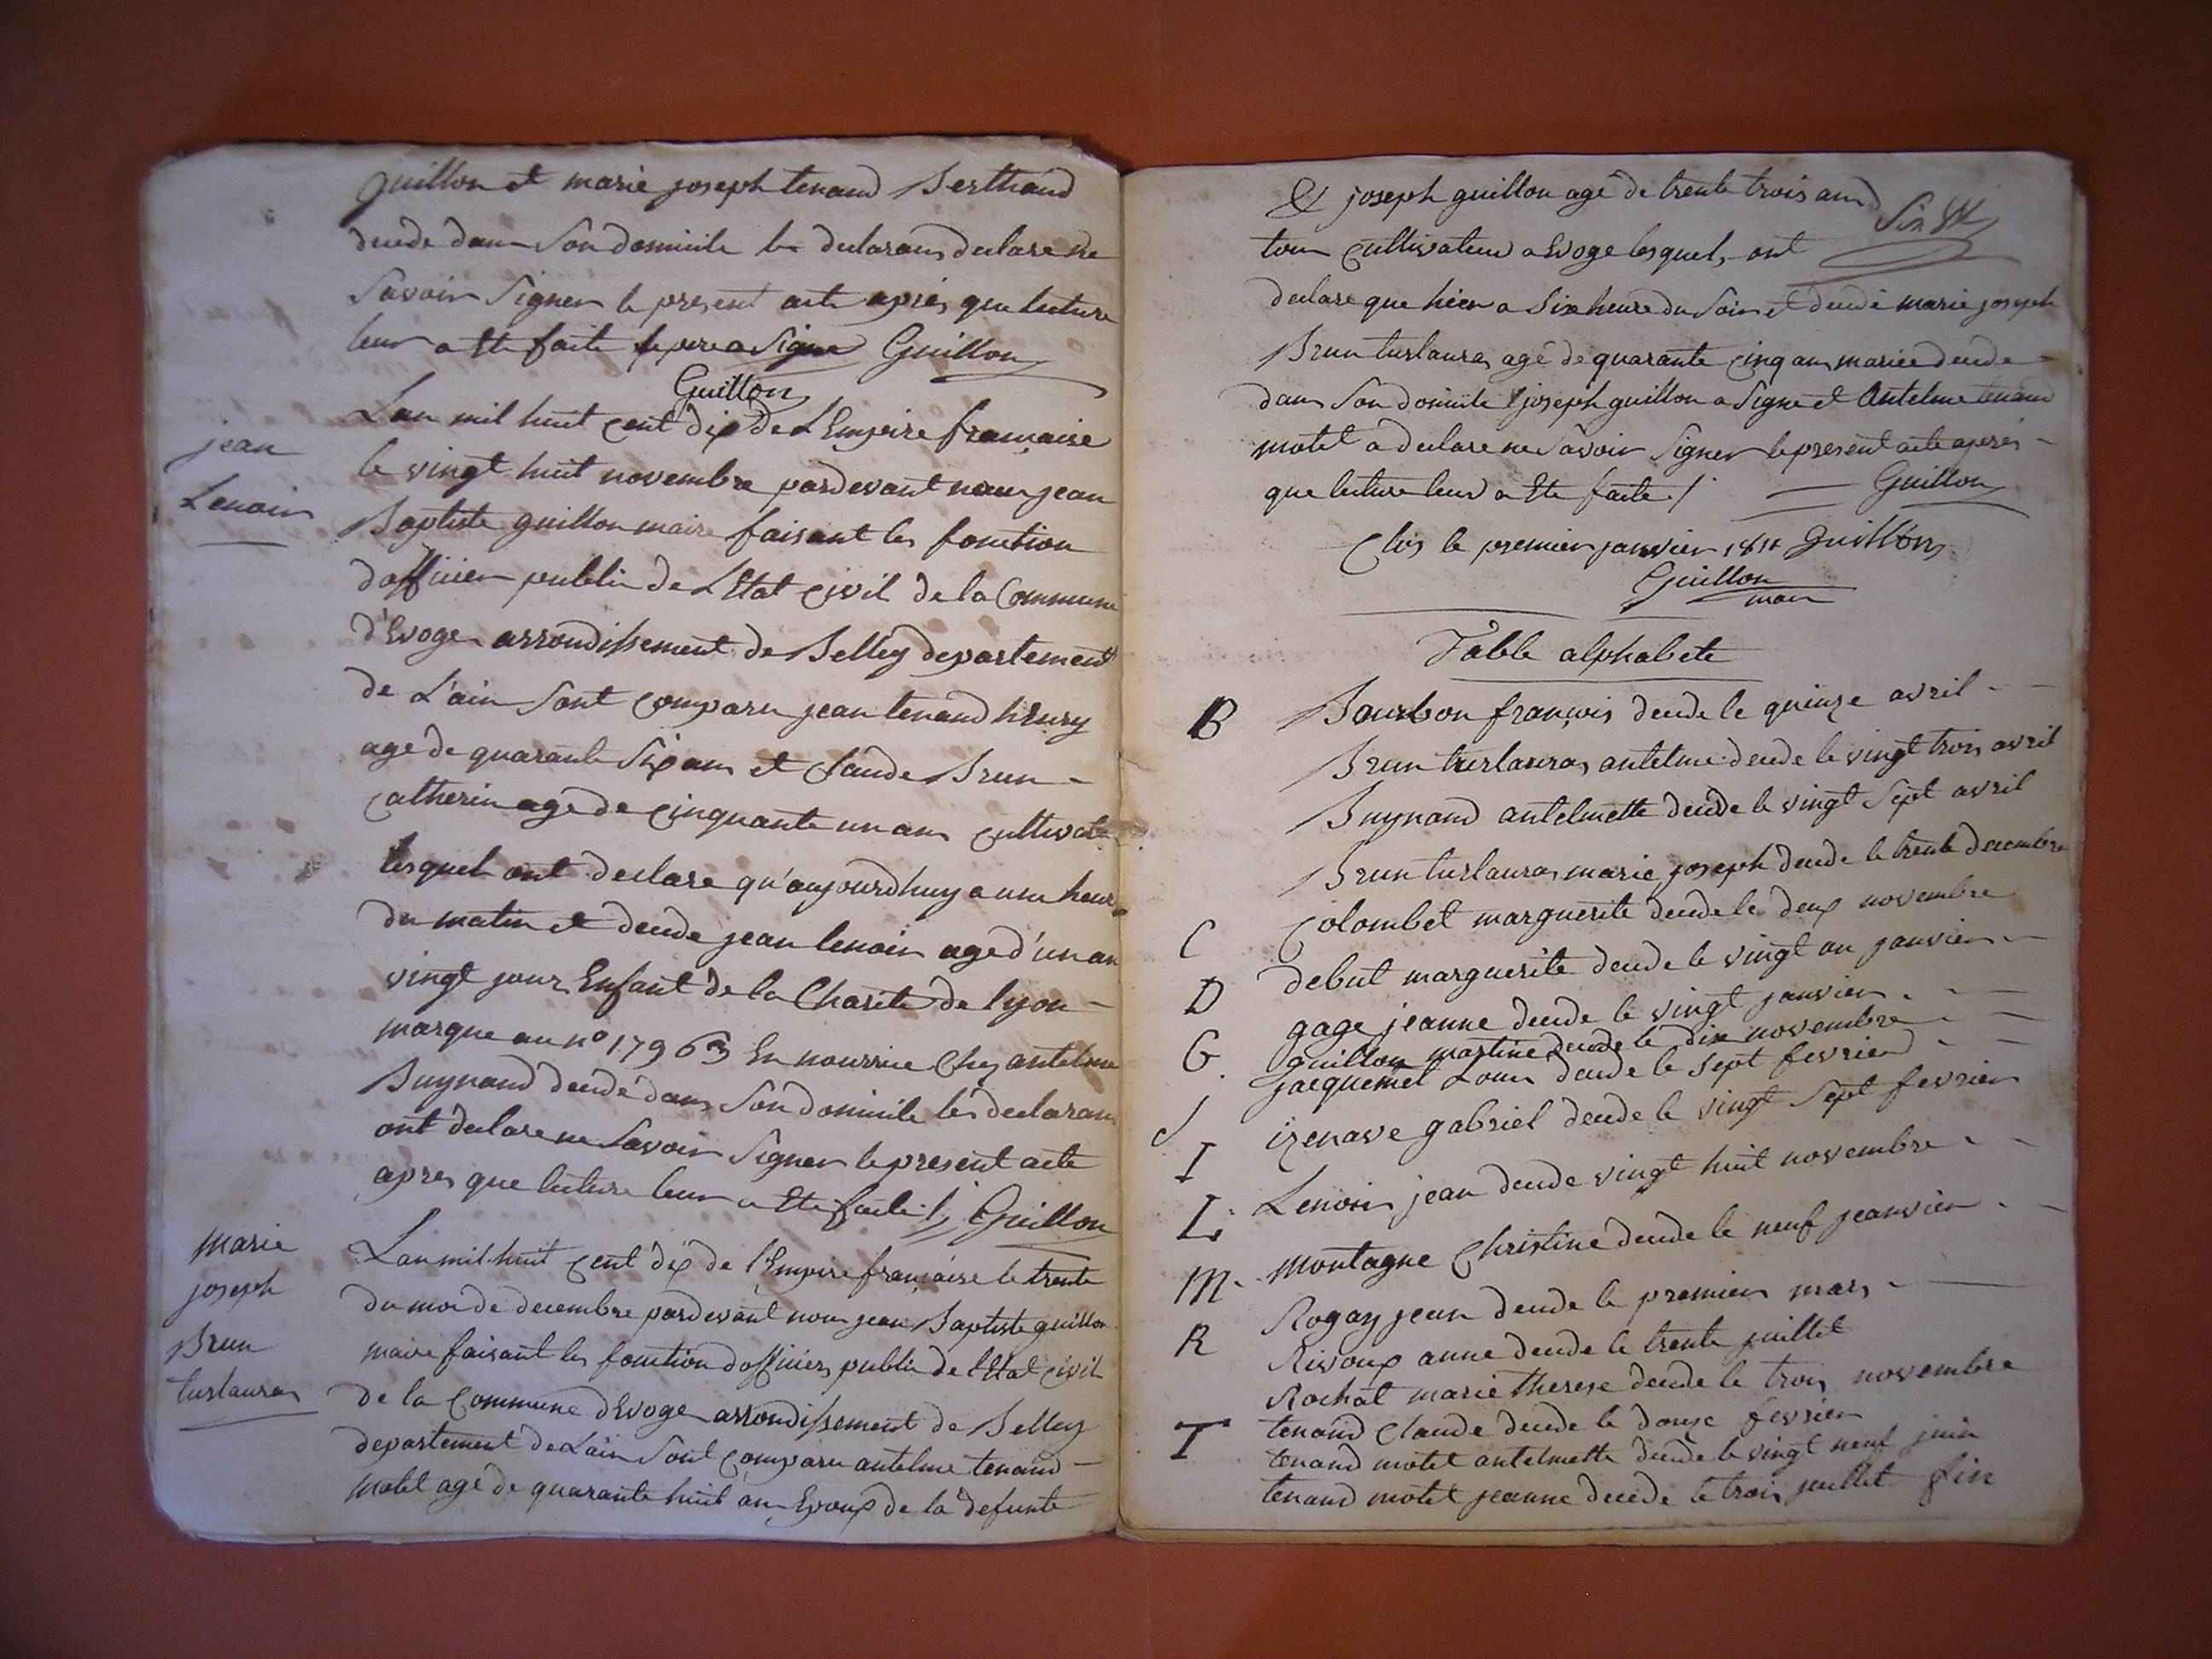 guillon et marie joseph tenand Berthand
decede dans Son domicile le declarans declare ne
Savoir Signer le present acte aprés que lecture
leur a Ete faite le pere a Signe Guillon
Guillon
jean
Lenoir
Lan mil huit cent dix de L'Empire francaise
le vingt huit novembre pardevant nous jean
Baptiste guillon maire faisant les fonction
dofficier public de L'Etat civil de la Commune
d'Evoges arrondissement de Belley departement
de L'ain Sont comparu jean tenand henry
age de quarante Six ans et Claude Brun -
catherin agé de cinquante un ans cultivate
lesquel ont declare qu'aujourdhuy a une heur
du matin et decede jean lenoir age d'un an
vingt jour Enfant de la Charite de lyon -
marque au no 17963 En nourrice Chez antelme
Buynand decedé dans Son domicile les declarans
ont declare ne Savoir Signer le present acte
apres que lecture leur a Ete faite ./. Guillon
marie
joseph
Brun
turlauras
Lan mil huit cent dix de l'Empire francaise le trente
du moi de decembre pardevant nous jean Baptiste guillon
maire faisant les fonction dofficier public de l'Etat civil
de la Commune dEvoges arrondissement de Belley
departement de Lain Sont comparu antelme tenand -
motet agé de quarante huit an Epoux de la defunte
& joseph guillon agé de trente trois ans
Six
tous cultivateur a Evoge lesquels ont
declare que hier a Six heure du Soir et decedé marie joseph
Brun turlauras agé de quarante cinq ans mariée decede -
dans Son domicile joseph guillon a Signe et Antelme tenand
motet a declare ne Savoir Signer le present acte aprés -
que lecture leur a Ete faite ./. Guillon
Clos le premier janvier 1811 Guillon
Guillon
maire
Table alphabete
B Bourbon françois decede le quinze avril -
Brun turlauras antelme decede le vingt trois avril
Buynand antelmette decede le vingt Sept avril
Brun turlauras marie joseph decede le trente decembre
C Colombet marguerite decede le deux novembre
D debut marguerite decede le vingt un janvier -
G gage jeanne decede le vingt janvier . -
guillon martine decede le dix novembre -
J jacquemet Louis decede le Sept fevrier -
I izenave gabriel decede le vingt Sept fevrier
L Lenoir jean decede vingt huit novembre -
M. montagne Christine decede le neuf jeanvier -
R Rogay jean decede le premier mars -
Rivoux anne decede le trente juillet
Rochat marie therese decede le trois novembre
T tenand Claude decede le douze fevrier
tenand motet antelmette decede le vingt neuf juin
tenand motet jeanne decede le trois juillet fin